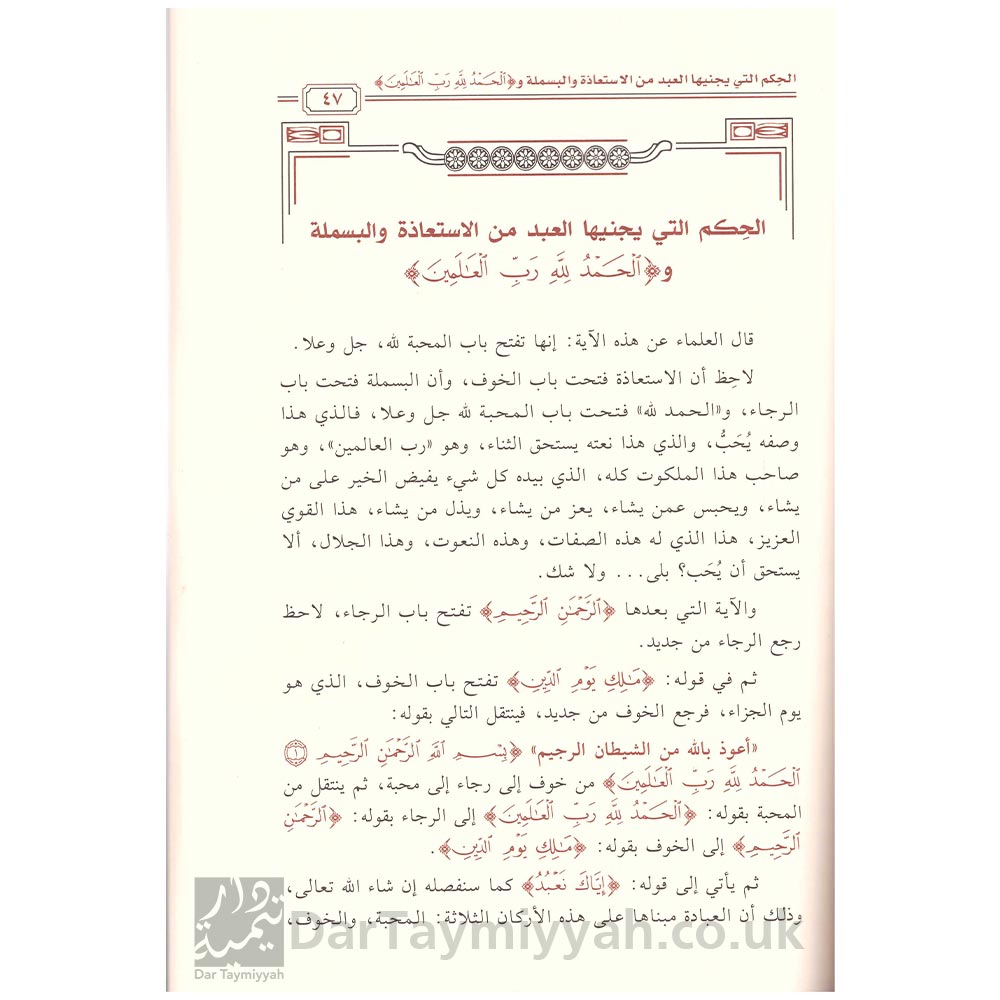 الحِكم التي يجنيها العبد من الاستعاذة والبسملة و﴿ٱلۡحَمۡدُ لِلَّهِ رَبِّ ٱلۡعَٰلَمِينَ﴾
٤٧
الحِكم التي يجنيها العبد من الاستعاذة والبسملة
و﴿ٱلۡحَمۡدُ لِلَّهِ رَبِّ ٱلۡعَٰلَمِينَ﴾
قال العلماء عن هذه الآية: إنها تفتح باب المحبة لله، جل وعلا.
لاحِظ أن الاستعاذة فتحت باب الخوف، وأن البسملة فتحت باب
الرجاء، و«الحمد لله» فتحت باب المحبة لله جل وعلا، فالذي هذا
وصفه يُحَبُّ، والذي هذا نعته يستحق الثناء، وهو «رب العالمين»، وهو
صاحب هذا الملكوت كله، الذي بيده كل شيء يفيض الخير على من
يشاء، ويحبس عمن يشاء، يعز من يشاء، ويذل من يشاء، هذا القوي
العزيز، هذا الذي له هذه الصفات، وهذه النعوت، وهذا الجلال، ألا
يستحق أن يُحَب؟ بلى... ولا شك.
والآية التي بعدها ﴿ٱلرَّحۡمَٰنِ ٱلرَّحِيمِ﴾ تفتح باب الرجاء، لاحظ
رجع الرجاء من جديد.
ثم في قوله: ﴿مَٰلِكِ يَوۡمِ ٱلدِّينِ﴾ تفتح باب الخوف، الذي هو
يوم الجزاء، فرجع الخوف من جديد، فينتقل التالي بقوله:
«أعوذ بالله من الشيطان الرجيم» ﴿بِسۡمِ ٱللَّهِ ٱلرَّحۡمَٰنِ ٱلرَّحِيمِ ١
ٱلۡحَمۡدُ لِلَّهِ رَبِّ ٱلۡعَٰلَمِينَ﴾ من خوف إلى رجاء إلى محبة، ثم ينتقل من
المحبة بقوله: ﴿ٱلۡحَمۡدُ لِلَّهِ رَبِّ ٱلۡعَٰلَمِينَ﴾ إلى الرجاء بقوله: ﴿ٱلرَّحۡمَٰنِ
ٱلرَّحِيمِ﴾ إلى الخوف بقوله: ﴿مَٰلِكِ يَوۡمِ ٱلدِّينِ﴾.
ثم يأتي إلى قوله: ﴿إِيَّاكَ نَعۡبُدُ﴾ كما سنفصله إن شاء الله تعالى،
وذلك أن العبادة مبناها على هذه الأركان الثلاثة: المحبة، والخوف،
دار تيمية
Dar Taymiyyah
DarTaymiyyah.co.uk